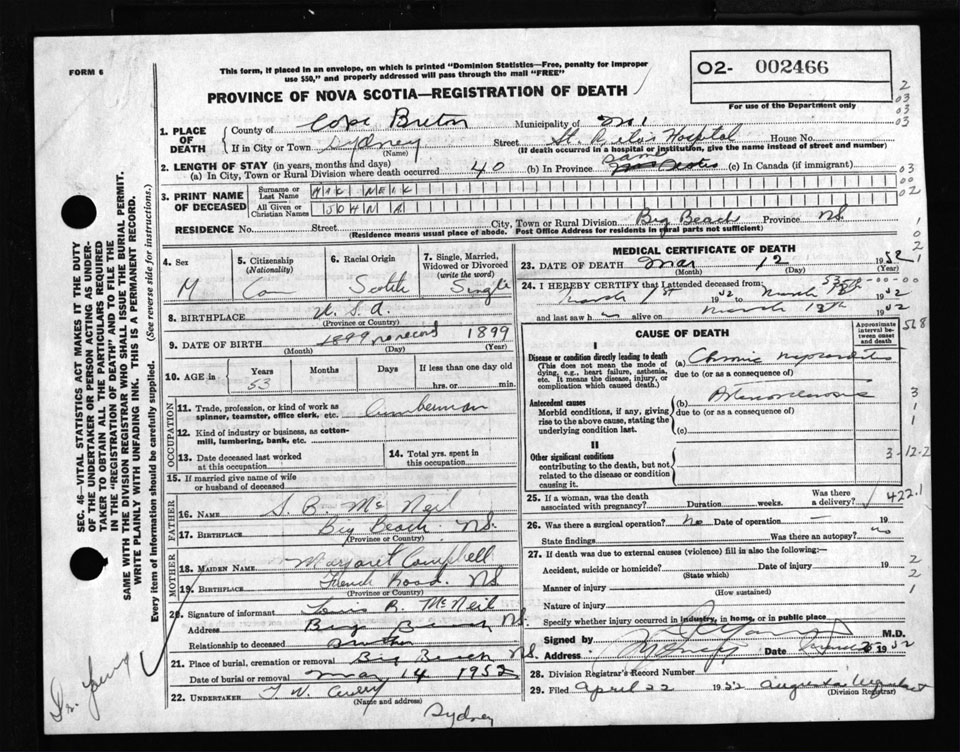 FORM 6
This form, if placed in an envelope, on which is printed "Dominion Statistics—Free, penalty for improper
use $50," and properly addressed will pass through the mail "FREE"
PROVINCE OF NOVA SCOTIA—REGISTRATION OF DEATH
O2- 002466
For use of the Department only
2
03
03
03
1. PLACE OF DEATH
County of Cape Breton Municipality of
If in City or Town Sydney (Name) Street St. Hospital House No.
(If death occurred in a hospital or institution, give the name instead of street and number)
2. LENGTH OF STAY (in years, months and days)
(a) In City, Town or Rural Division where death occurred 40 (b) In Province same (c) In Canada (if immigrant)
03
00
02
3. PRINT NAME OF DECEASED
Surname or Last Name
All Given or Christian Names JOHN A
RESIDENCE No. Street City, Town or Rural Division Big Beach Province NS.
(Residence means usual place of abode. Post Office Address for residents in rural parts not sufficient)
4. Sex M
5. Citizenship (Nationality) Can
6. Racial Origin Scotch
7. Single, Married, Widowed or Divorced (write the word) Single
8. BIRTHPLACE U.S.A. (Province or Country)
9. DATE OF BIRTH 1899 no record 1899
(Month) (Day) (Year)
10. AGE in Years 53 Months Days If less than one day old hrs. or min.
OCCUPATION
11. Trade, profession, or kind of work as spinner, teamster, office clerk, etc. lumberman
12. Kind of industry or business, as cotton-mill, lumbering, bank, etc.
13. Date deceased last worked at this occupation
14. Total yrs. spent in this occupation
15. If married give name of wife or husband of deceased
FATHER
16. NAME S. B. McNeil
17. BIRTHPLACE Big Beach NS.
(Province or Country)
MOTHER
18. MAIDEN NAME Margaret Campbell
19. BIRTHPLACE French Road. NS
(Province or Country)
20. Signature of informant Louis B. McNeil
Address Big Beach NS.
Relationship to deceased brother
21. Place of burial, cremation or removal Big Beach NS.
Date of burial or removal Mar 14 1952
22. UNDERTAKER T. W. Curry
(Name and address)
Sydney
MEDICAL CERTIFICATE OF DEATH
23. DATE OF DEATH Mar 12 1952
(Month) (Day) (Year)
24. I HEREBY CERTIFY that I attended deceased from:
March 1st 1952 to March 1952
and last saw h alive on March 1952
CAUSE OF DEATH
Approximate interval between onset and death
I
Disease or condition directly leading to death
(This does not mean the mode of dying, e.g., heart failure, asthenia, etc. It means the disease, injury, or complication which caused death.)
(a) Chronic myocarditis
due to (or as a consequence of)
Antecedent causes
Morbid conditions, if any, giving rise to the above cause, stating the underlying condition last.
(b) Arteriosclerosis
due to (or as a consequence of)
(c)
II
Other significant conditions
contributing to the death, but not related to the disease or condition causing it.
3
1
1
3-12-2
25. If a woman, was the death associated with pregnancy? Duration weeks. Was there a delivery?
422.1
26. Was there a surgical operation? No Date of operation 19
State findings Was there an autopsy? no
27. If death was due to external causes (violence) fill in also the following:—
Accident, suicide or homicide? (State which) Date of injury 19
Manner of injury (How sustained)
Nature of injury
Specify whether injury occurred in industry, in home, or in public place
2
2
1
Signed by M.D.
Address Date 1952
28. Division Registrar's Record Number
29. Filed April 22 1952
(Division Registrar)
SEC. 46—VITAL STATISTICS ACT MAKES IT THE DUTY
OF THE UNDERTAKER OR PERSON ACTING AS UNDER-
TAKER TO OBTAIN ALL THE PARTICULARS REQUIRED
IN THE "REGISTRATION OF DEATH" AND TO FILE THE
SAME WITH THE DIVISION REGISTRAR WHO SHALL ISSUE THE BURIAL PERMIT.
WRITE PLAINLY WITH UNFADING INK. THIS IS A PERMANENT RECORD.
Every item of Information should be carefully supplied. (See reverse side for instructions.)
Dr. Young